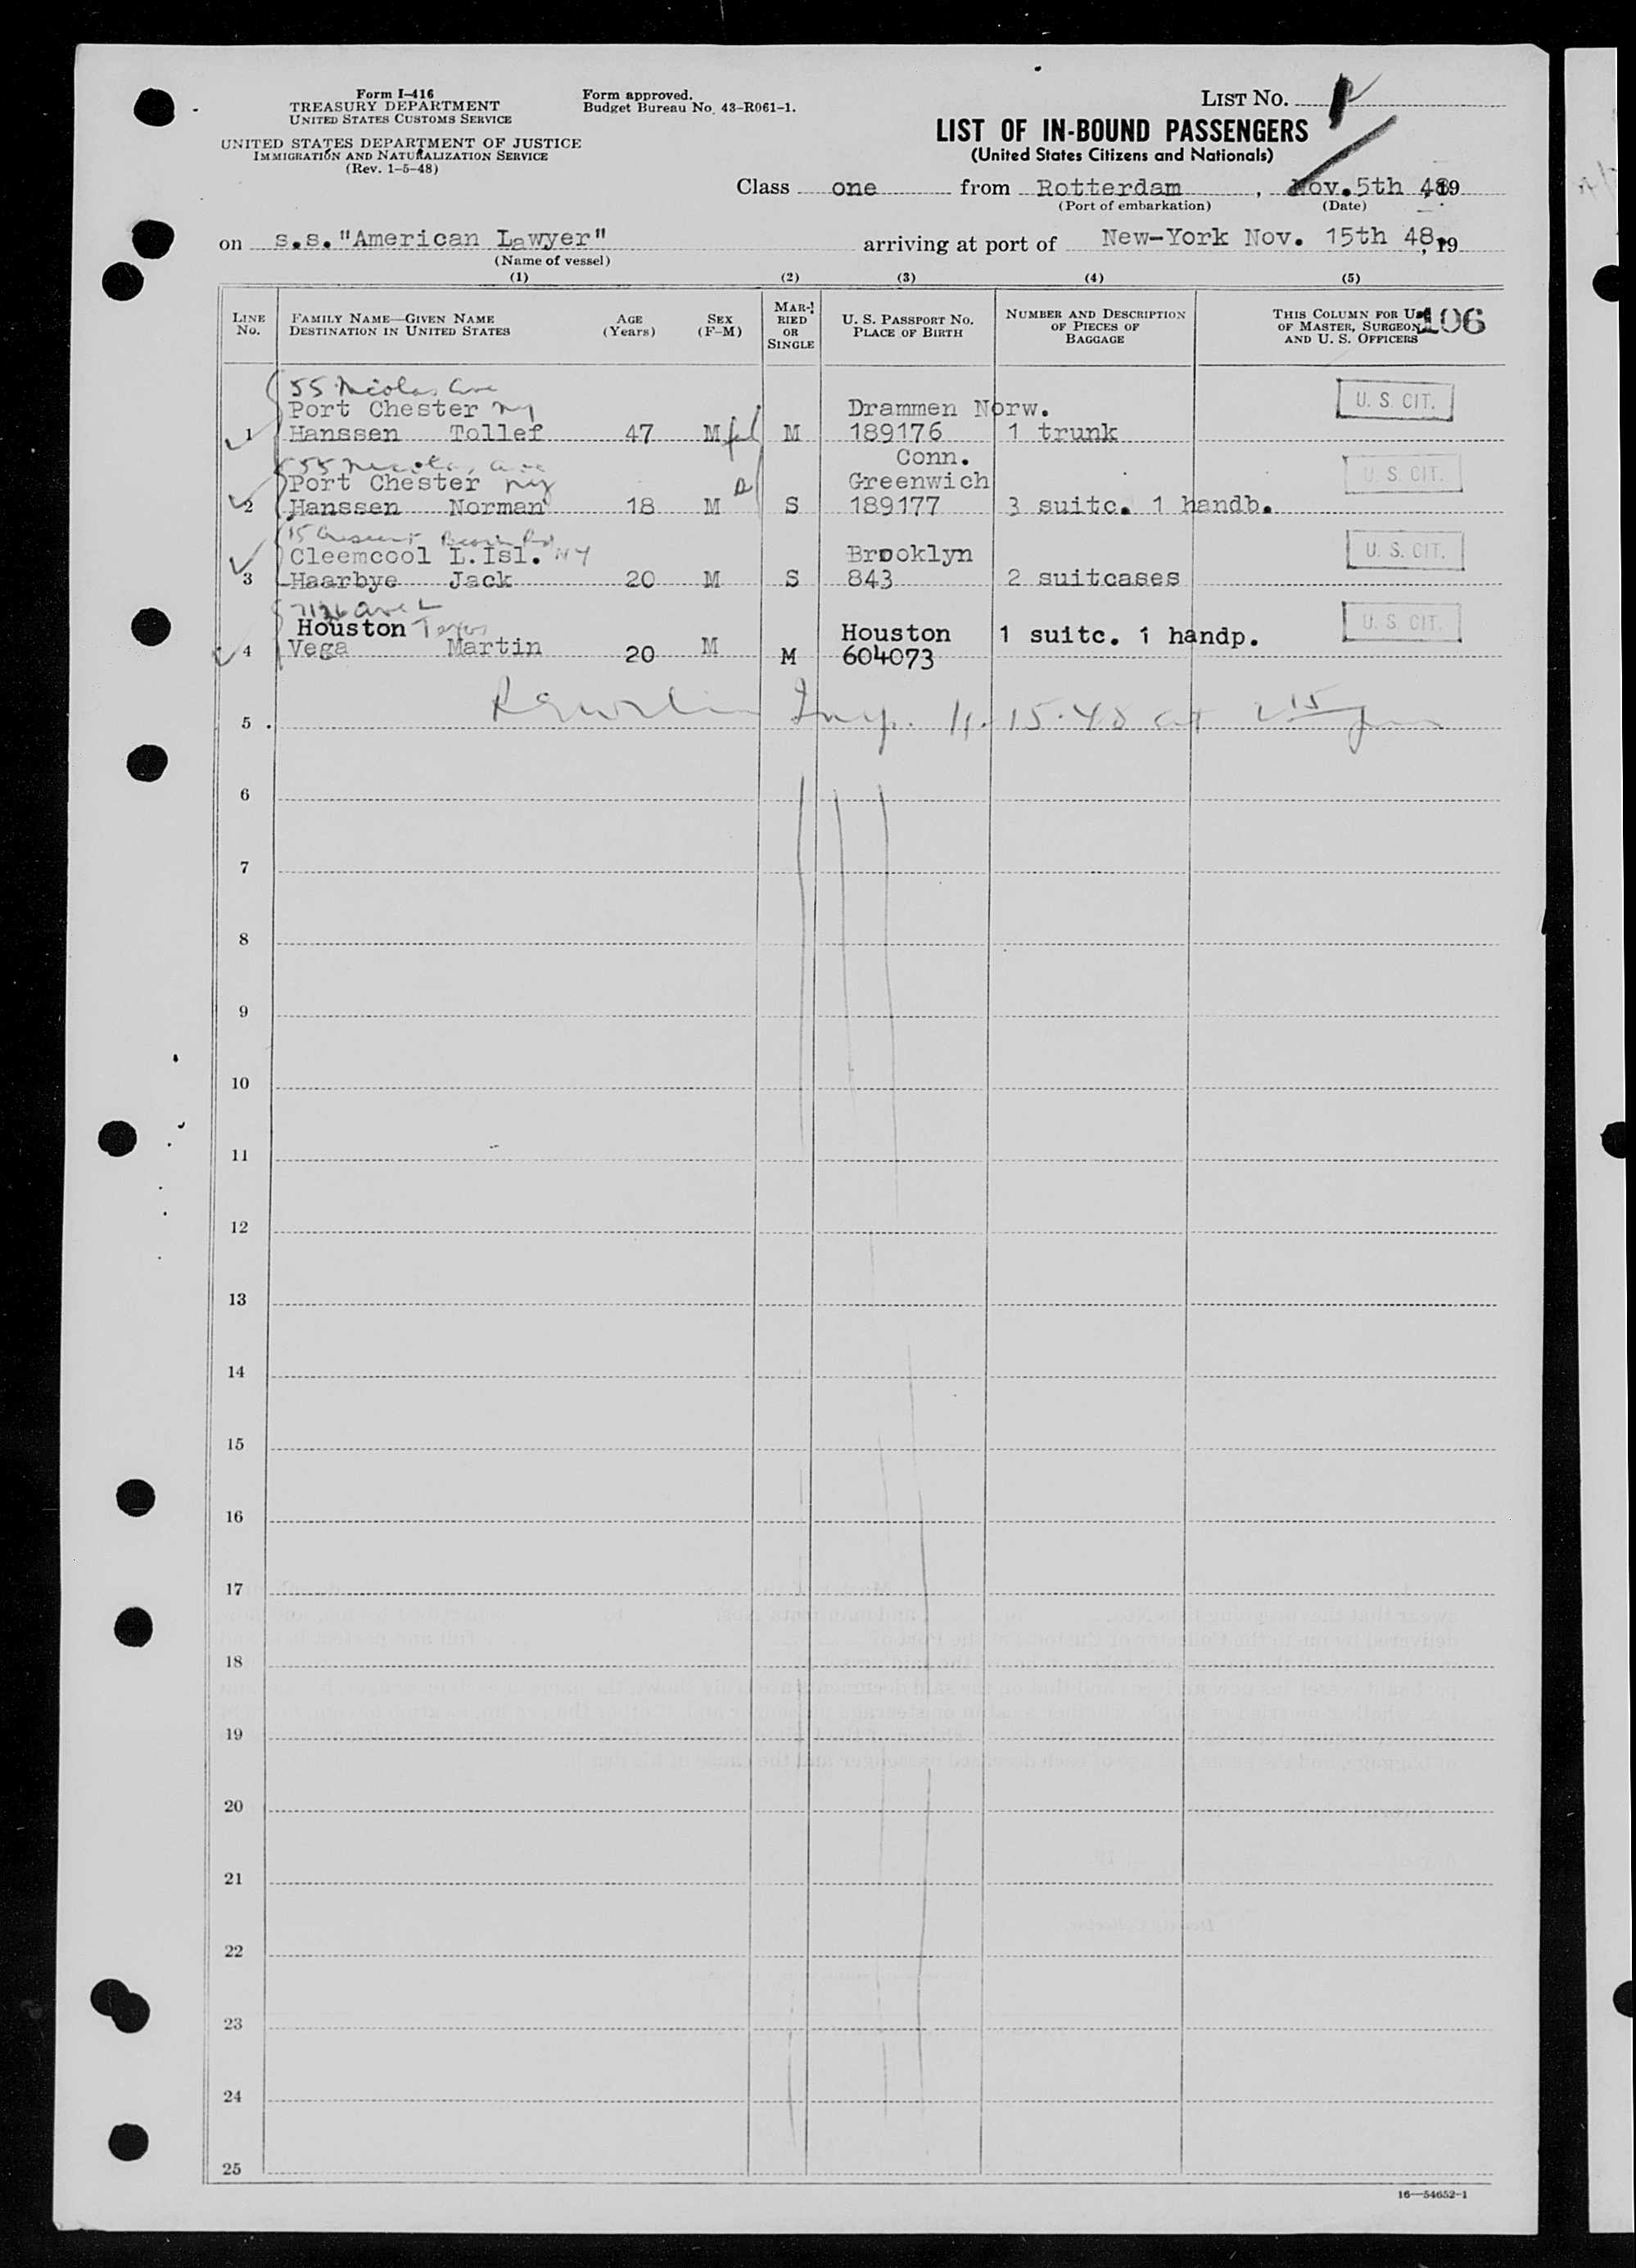 Form I-416
TREASURY DEPARTMENT
UNITED STATES CUSTOMS SERVICE
UNITED STATES DEPARTMENT OF JUSTICE
IMMIGRATION AND NATURALIZATION SERVICE
(Rev. 1-5-48)
Form approved.
Budget Bureau No. 43-R061-1.
LIST NO.
LIST OF IN-BOUND PASSENGERS
(United States Citizens and Nationals)
Class one from Rotterdam , Nov. 5th 48 19
(Port of embarkation) (Date)
on s.s. "American Lawyer" arriving at port of New-York Nov. 15th 48, 19
(Name of vessel)
(1) (2) (3) (4) (5)
LINE NO. FAMILY NAME—GIVEN NAME DESTINATION IN UNITED STATES AGE (Years) SEX (F-M) MARRIED OR SINGLE U. S. PASSPORT NO. PLACE OF BIRTH NUMBER AND DESCRIPTION OF PIECES OF BAGGAGE THIS COLUMN FOR USE OF MASTER, SURGEON, AND U. S. OFFICERS 106
55 Nicolas Ave
Port Chester NY Drammen Norw. U. S. CIT.
1 Hanssen Tollef 47 M M 189176 1 trunk
55 Nicolas Ave Conn.
Port Chester NY Greenwich U. S. CIT.
2 Hanssen Norman 18 M S 189177 3 suitc. 1 handb.
15 Crescent Beach Rd
Cleemcool L.Isl. NY Brooklyn U. S. CIT.
3 Haarbye Jack 20 M S 843 2 suitcases
Ave L
Houston Texas Houston 1 suitc. 1 handp. U. S. CIT.
4 Vega Martin 20 M M 604073
5 Insp. 11-15-48 at
6
7
8
9
10
11
12
13
14
15
16
17
18
19
20
21
22
23
24
25
16—54652-1